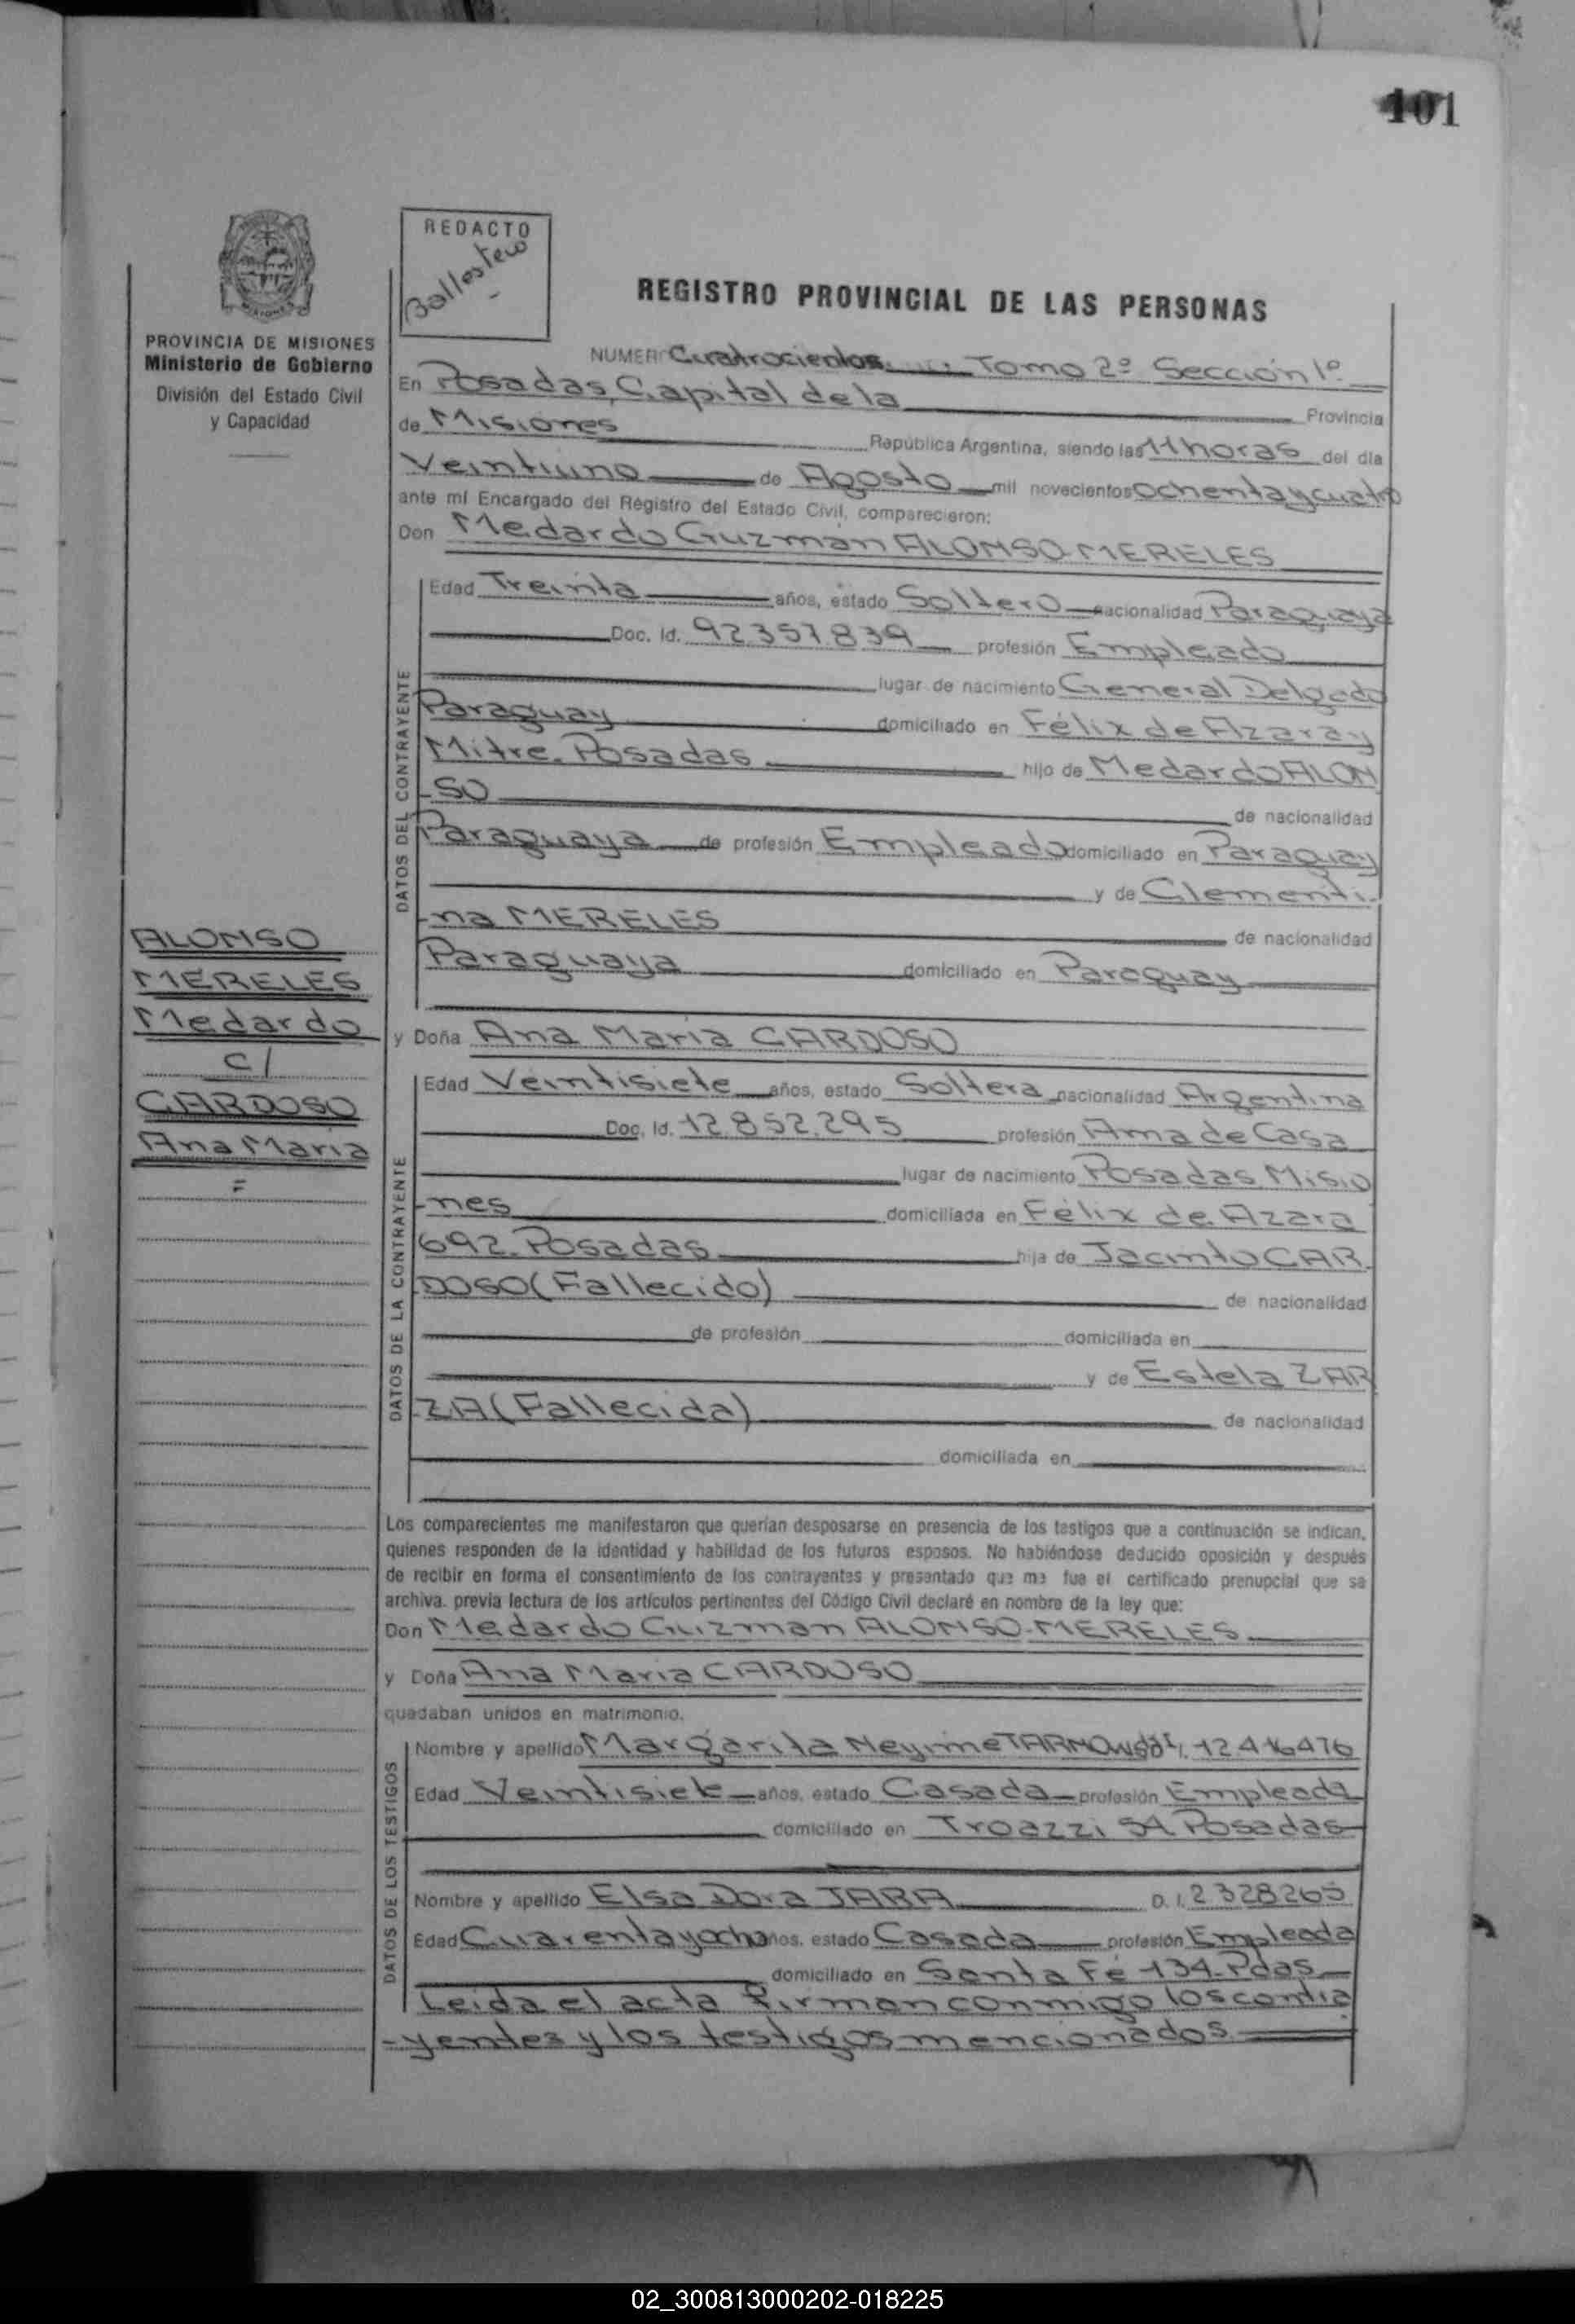 101
REDACTO
Ballestero
REGISTRO PROVINCIAL DE LAS PERSONAS
PROVINCIA DE MISIONES
Ministerio de Gobierno
División del Estado Civil
y Capacidad
NUMER Cuatrocientos Tomo 2º Sección 1º
En Posadas, Capital de la Provincia
de Misiones República Argentina, siendo las 11 horas del día
Veintiuno de Agosto mil novecientos ochenta y cuatro
ante mí Encargado del Registro del Estado Civil, comparecieron:
Don Medardo Guzman ALONSO-MERELES
DATOS DEL CONTRAYENTE
Edad Treinta años, estado Soltero nacionalidad Paraguaya
Doc. Id. 92.357.839 profesión Empleado
lugar de nacimiento General Delgado
Paraguay domiciliado en Félix de Azara y
Mitre. Posadas hijo de Medardo ALON
-SO de nacionalidad
Paraguaya de profesión Empleado domiciliado en Paraguay
y de Clementi-
-na MERELES de nacionalidad
Paraguaya domiciliado en Paraguay
ALONSO
MERELES
Medardo
c/
CARDOSO
Ana Maria
=
y Doña Ana Maria CARDOSO
DATOS DE LA CONTRAYENTE
Edad Veintisiete años, estado Soltera nacionalidad Argentina
Doc. Id. 12.852.295 profesión Ama de Casa
lugar de nacimiento Posadas Misio
-nes domiciliada en Félix de Azara
692. Posadas hija de Jacinto CAR-
DOSO (Fallecido) de nacionalidad
de profesión domiciliada en
y de Estela ZAR
-ZA (Fallecida) de nacionalidad
domiciliada en
Los comparecientes me manifestaron que querían desposarse en presencia de los testigos que a continuación se indican,
quienes responden de la identidad y habilidad de los futuros esposos. No habiéndose deducido oposición y después
de recibir en forma el consentimiento de los contrayentes y presentado que me fue el certificado prenupcial que se
archiva. previa lectura de los artículos pertinentes del Código Civil declaré en nombre de la ley que:
Don Medardo Guzman ALONSO-MERELES
y Doña Ana Maria CARDOSO
quedaban unidos en matrimonio.
DATOS DE LOS TESTIGOS
Nombre y apellido Margarita 12.416476
Edad Veintisiete años, estado Casada profesión Empleada
domiciliado en Troazzi 54 Posadas
Nombre y apellido Elsa Dora JARA D. I. 2328265
Edad Cuarenta y ocho años, estado Casada profesión Empleada
domiciliado en Santa Fe 134-Pdas
Leida el acta firman conmigo los contra
-yentes y los testigos mencionados
02_300813000202-018225